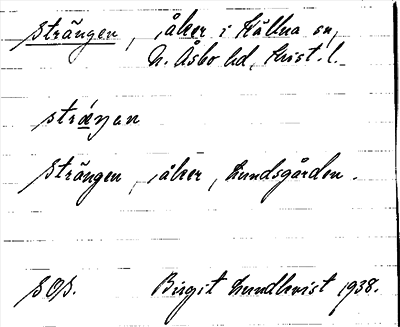 Strängen, åker i Källna sn,
N. Åsbo hd, Krist. l.
stráŋan
Strängen, åker, Lundsgården.
SOS. Birgit Lundkvist 1938.